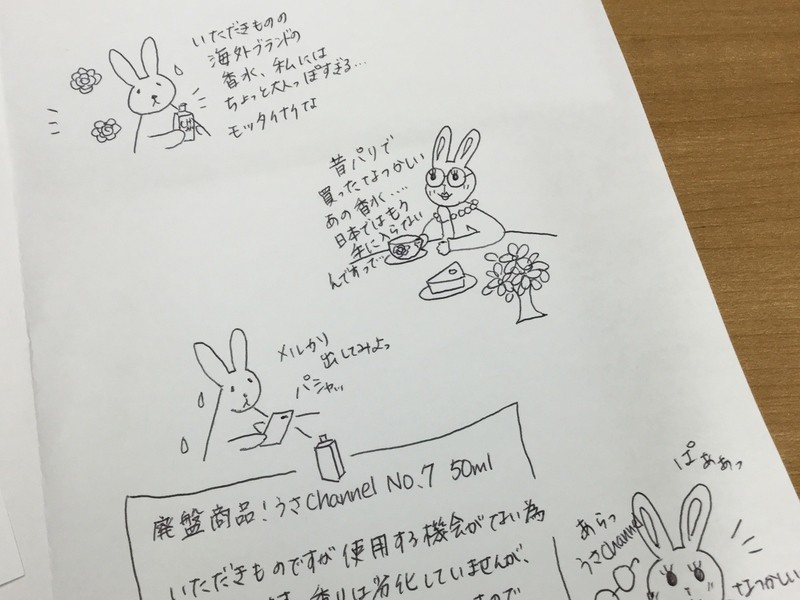 いただきものの
海外ブランドの
香水、私には
ちょっと大人っぽすぎる…
モッタイナイナ
昔パリで
買ったなつかしい
あの香水‥‥
日本ではもう
手に入らない
んですって〜
メルカリ
出してみよっ
パシャッ
廃盤商品！うさChannel No.7 50ml
いただきものですが使用する機会がない為
香りは劣化していませんが、
ぱぁぁっ
あらっ
うさChannel
なつかしい